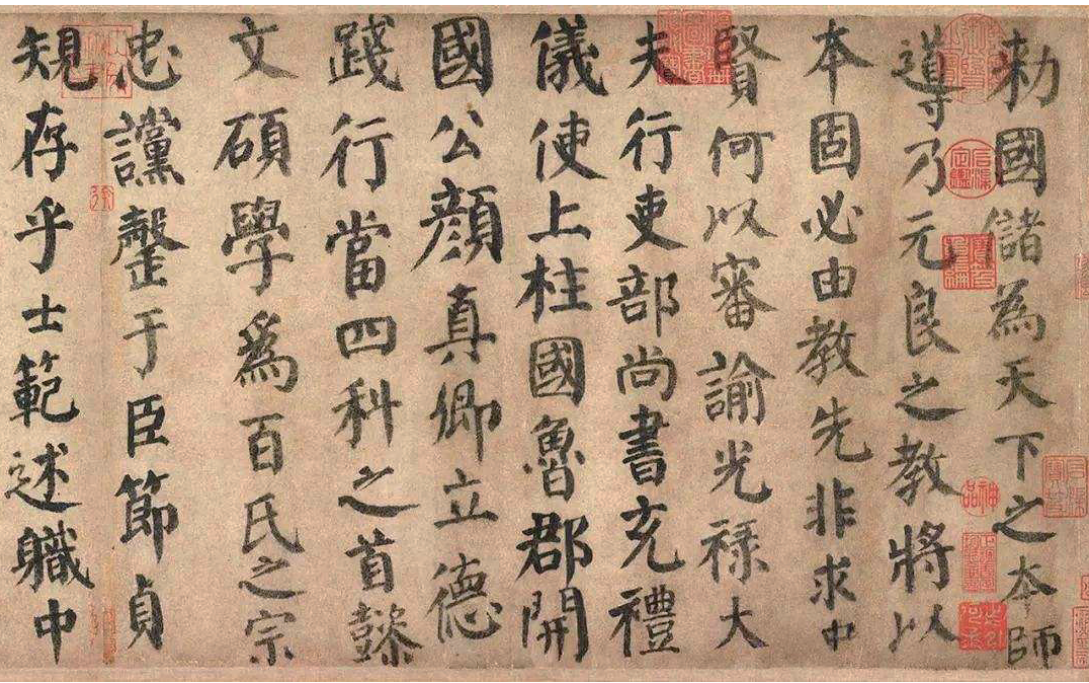 勅國儲為天下之本師
導乃元良之教將以
本固必由教先非求中
賢何以審諭光祿大
夫行吏部尚書充禮
儀使上柱國魯郡開
國公顏真卿立德
踐行當四科之首懿
文碩學爲百氏之宗
忠讜罄于臣節貞
規存乎士範述職中